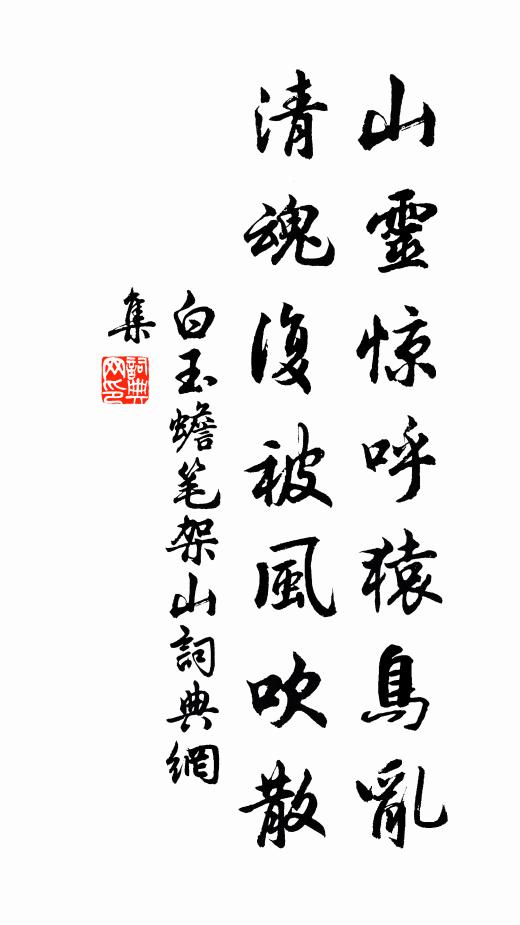 山靈惊呼猿鳥亂
清魂復被風吹散
白玉蟾笔架山詞典網
集
詞典
网印